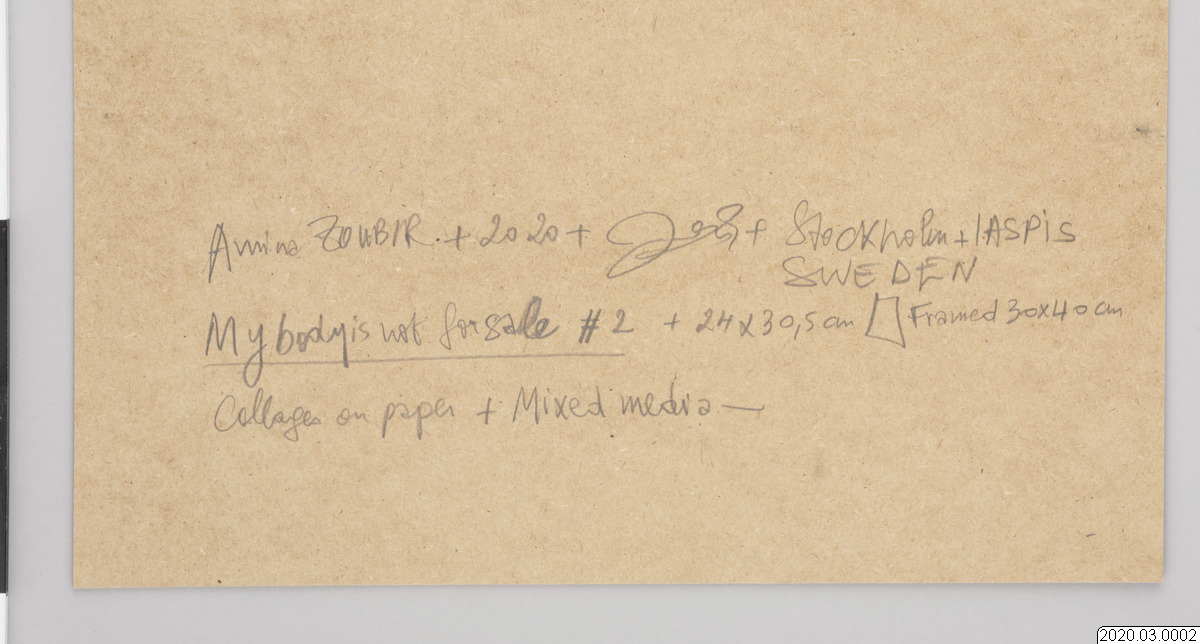 Amina ZOUBIR + 2020 + + Stockholm + IASPIS
SWEDEN
My body is not for sale #2 + 24x30,5 cm Framed 30x40 cm
Collages on paper + Mixed media —
2020.03.0002